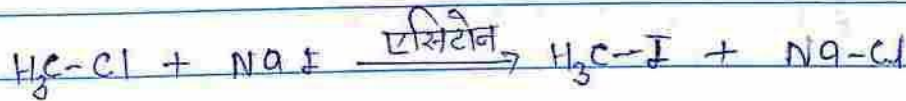 H₃C-Cl + NaI एसिटोन→ H₃C-I + Na-Cl